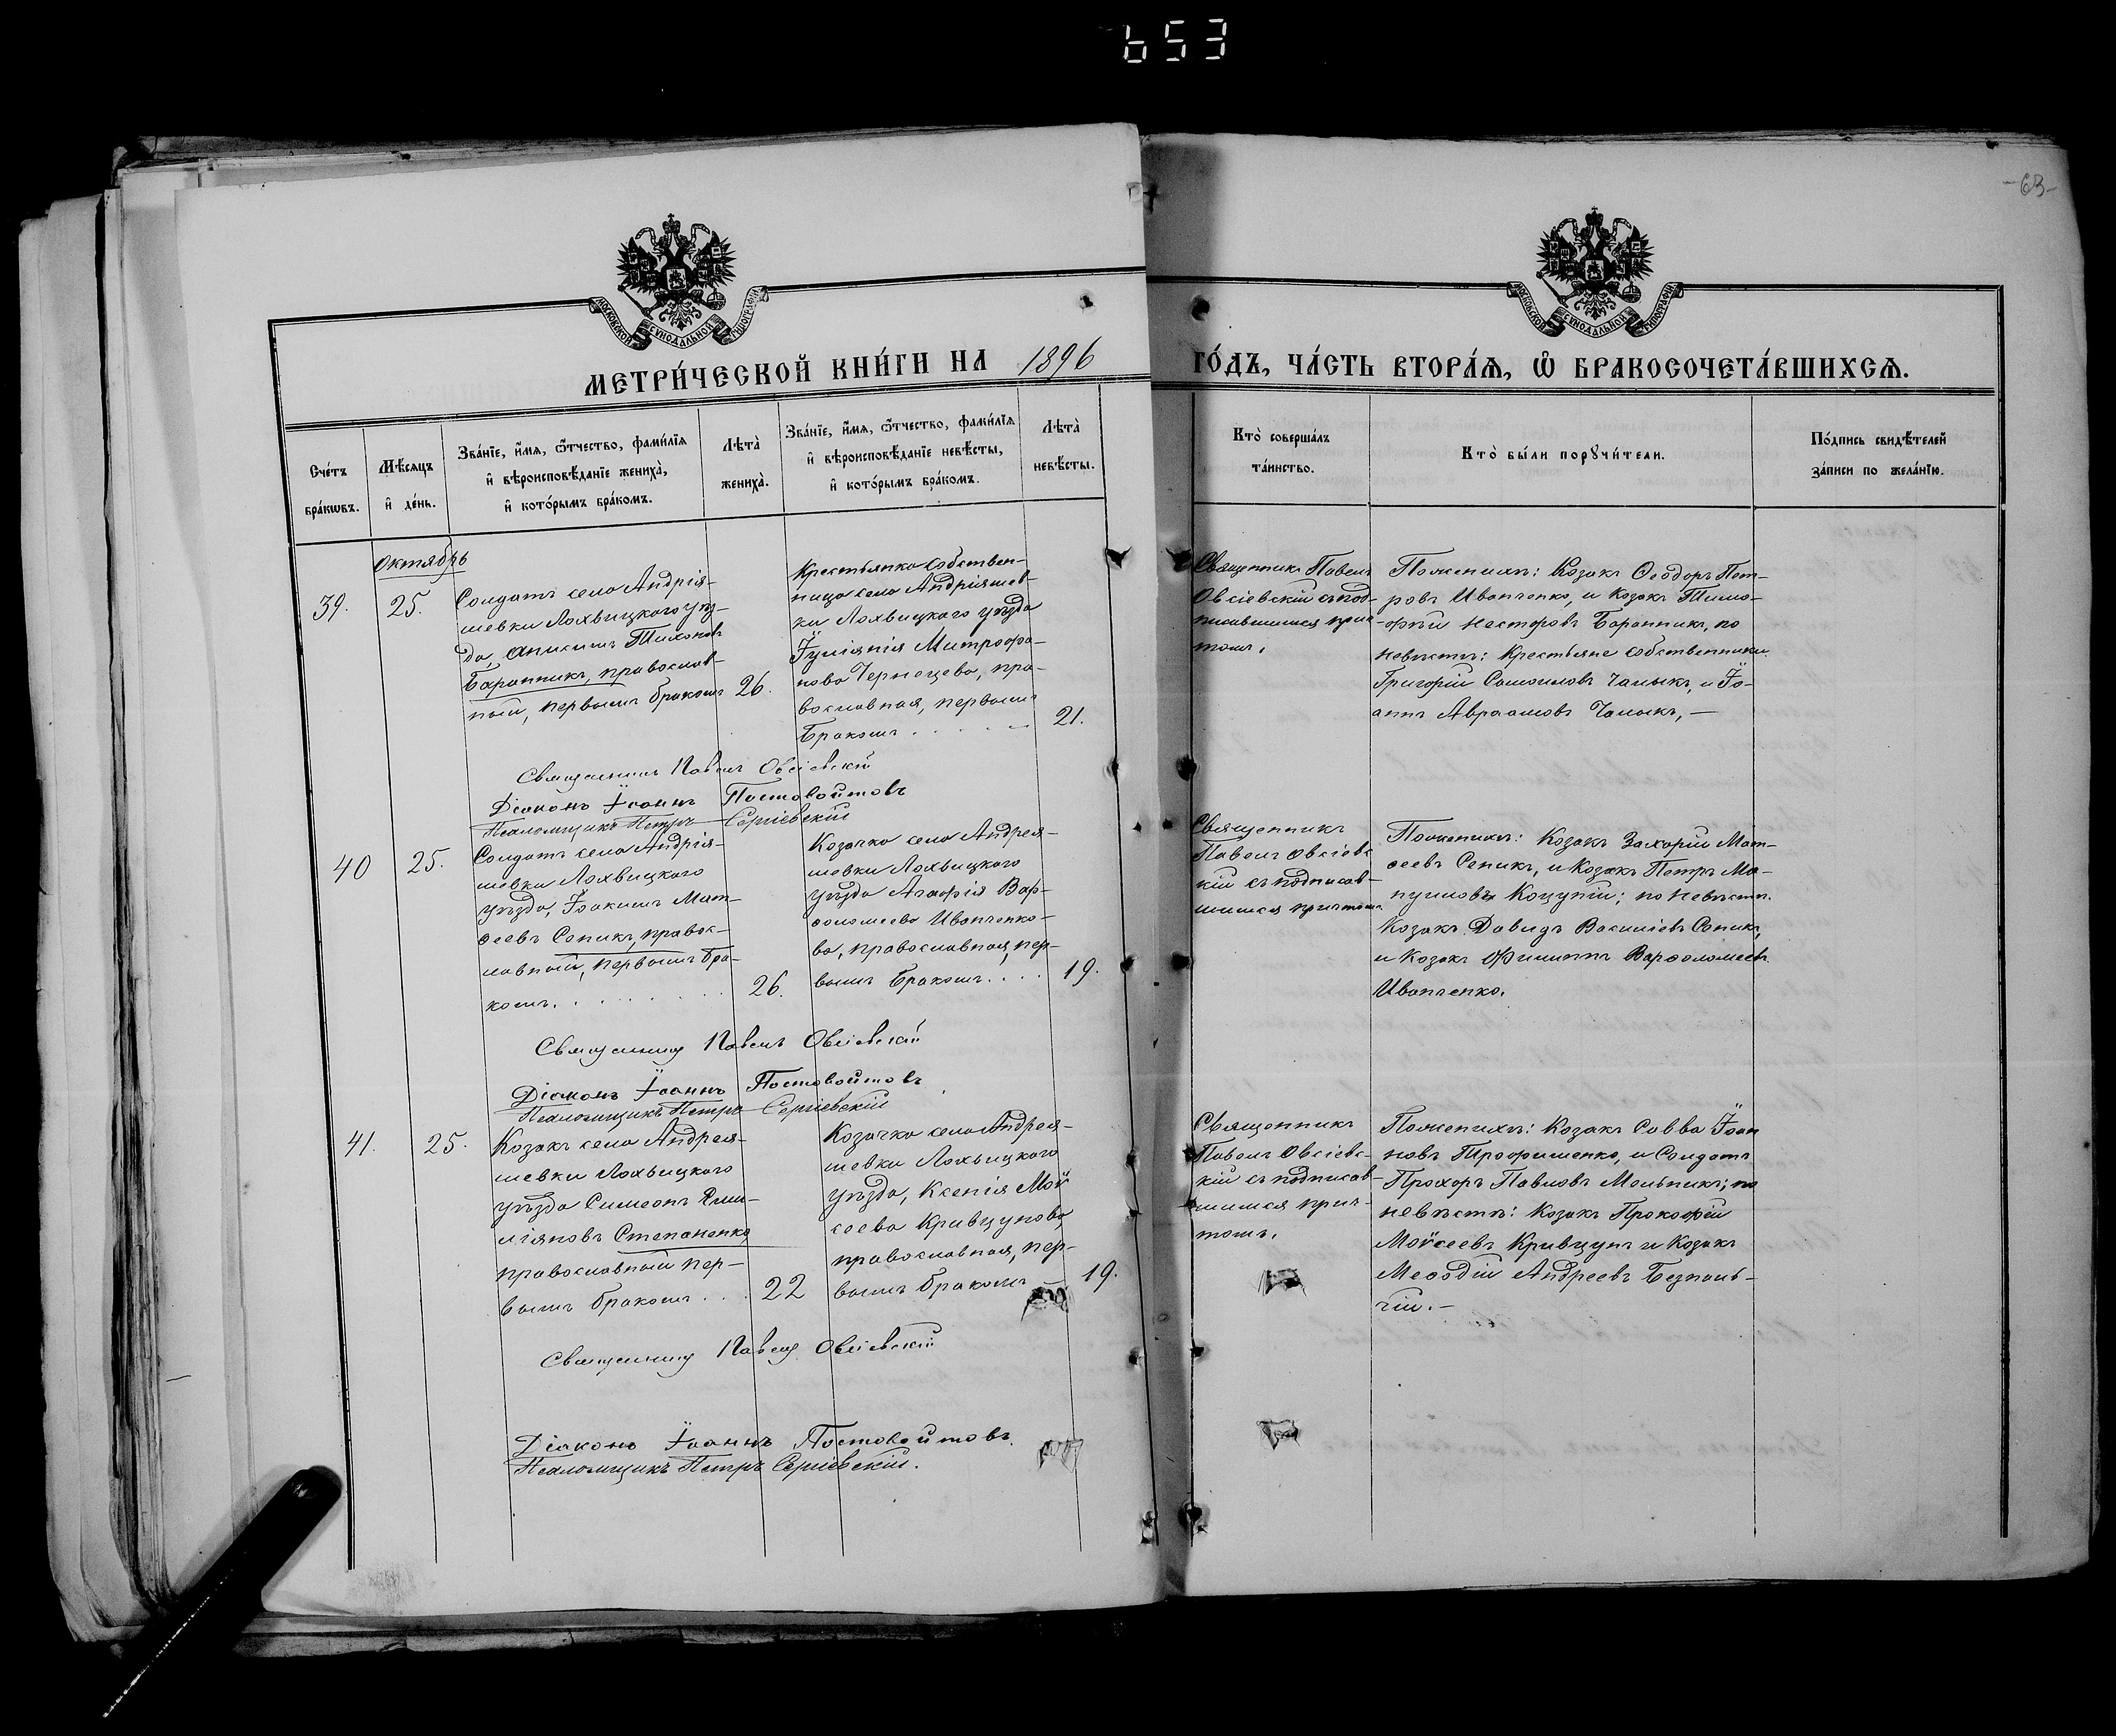 653
-63-
МОСКОВСКОЙ СѴНОДАЛЬНОЙ ТИПОГРАФІИ
МОСКОВСКОЙ СѴНОДАЛЬНОЙ ТИПОГРАФІИ
МЕТРИ́ЧЕСКОЙ КНИ́ГИ НА 1896 ГО́ДЪ, ЧА́СТЬ ВТОРА́Ѧ, Ѽ БРАКОСОЧЕТА́ВШИХСѦ.
Сче́тъ
бра́кѡвъ.
Мѣ́сѧцъ
и҆ де́нь.
Зва́нїе, и҆́мѧ, ѻ҆́тчество, фами́лїѧ
и҆ вѣроисповѣ́данїе жениха̀,
и҆ кото́рымъ бра́комъ.
Лѣ̀та
жениха̀.
Зва́нїе, и҆́мѧ, ѻ҆́тчество, фами́лїѧ
и҆ вѣроисповѣ́данїе невѣ́сты,
и҆ кото́рымъ бра́комъ.
Лѣ̀та
невѣ́сты.
Кто̀ соверша́лъ
та́инство.
Кто̀ бы́ли порꙋчи́тели.
По́дпись свидѣ́телей
за́писи по жела́нїю.
Октябрь
39.
25.
Солдатъ села Андрія-
шевки Лохвицкаго уѣз-
да, Анисимъ Тихоновъ
Баранникъ, православ-
ный, первымъ бракомъ
26.
Крестьянка собствен-
ница села Андріяшев-
ки Лохвицкаго уѣзда
Іуліанія Митрофа-
нова Чернецева, пра-
вославная, первымъ
бракомъ . . . . . —
21.
Священникъ Павелъ
Овсіевскій съ под-
писавшимся прич-
томъ,
По женихѣ: Козакъ Ѳеодоръ Пет-
ровъ Иванченко, и Козакъ Тимо-
фѣй Несторовъ Баранникъ, по
невѣстѣ: Крестьяне собственники
Григорій Самоиловъ Чалыкъ, и Іо-
аннъ Авраамовъ Чалыкъ, —
Священникъ Павелъ Овсіевскій
Діаконъ Іоаннъ Постовойтовъ
Псаломщикъ Петръ Сергіевскій
40
25.
Солдатъ села Андрія-
шевки Лохвицкаго
уѣзда, Іоакимъ Мат-
ѳеевъ Сепикъ, правос-
лавный, первымъ бра-
комъ. . . . . . . . .
26.
Козачка села Андрея-
шевки Лохвицкаго
уѣзда Агафія Вар-
ѳоломеева Иванченко-
ва, православная, пер-
вымъ бракомъ. . . .
19.
Священникъ
Павелъ Овсіевс-
кій съ подписав-
шимся причтомъ.
По женихѣ: Козакъ Захарій Мат-
ѳеевъ Сепикъ, и Козакъ Петръ Ма-
нуиловъ Коцупій; по невѣстѣ.
Козакъ Давидъ Василіевъ Сепикъ,
и Козакъ Филиппъ Варѳоломеевъ
Иванченко.
Священникъ Павелъ Овсіевскій
Діаконъ Іоаннъ Постовойтовъ
Псаломщикъ Петръ Сергіевскій
41.
25.
Козакъ села Андрея-
шевки Лохвицкаго
уѣзда Симеонъ Еми-
ліановъ Степаненко
православный пер-
вымъ бракомъ . . .
22
Козачка села Андрея-
шевки Лохвицкаго
уѣзда, Ксенія Мой
сеева Кривцунова,
православная, пер-
вымъ бракомъ
19.
Священникъ
Павелъ Овсіевс-
кій съ подписав-
шимся прич-
томъ,
По женихѣ: Козакъ Савва Іоан
новъ Трофименко, и Солдатъ
Прохоръ Павловъ Мольникъ; по
невѣстѣ: Козакъ Прокофій
Мойсеевъ Кривцунъ и Козакъ
Меѳодій Андреевъ Безпаль-
чій. —
Священникъ Павелъ Овсіевскій
Діаконъ Іоаннъ Постовойтовъ
Псаломщикъ Петръ Сергіевскій.